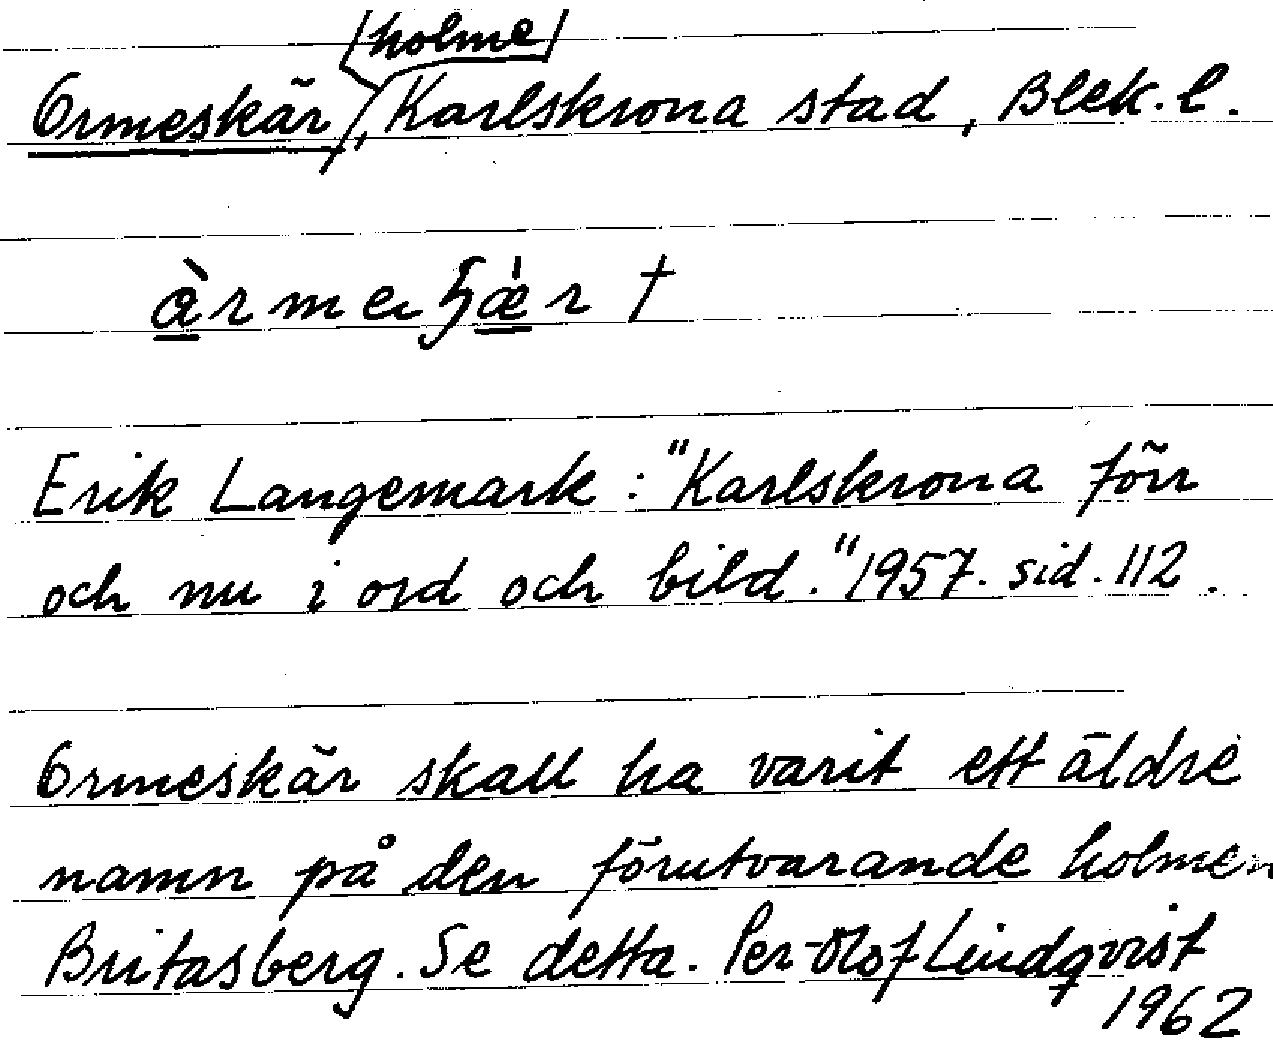 /holme/
Ormeskär, Karlskrona stad, Blek. l.
Erik Langemark: "Karlskrona förr
och nu i ord och bild." 1957. sid. 112.
Ormeskär skall ha varit ett äldre
namn på den förutvarande holmen
Britasberg. Se detta. Per-Olof Lindqvist
1962